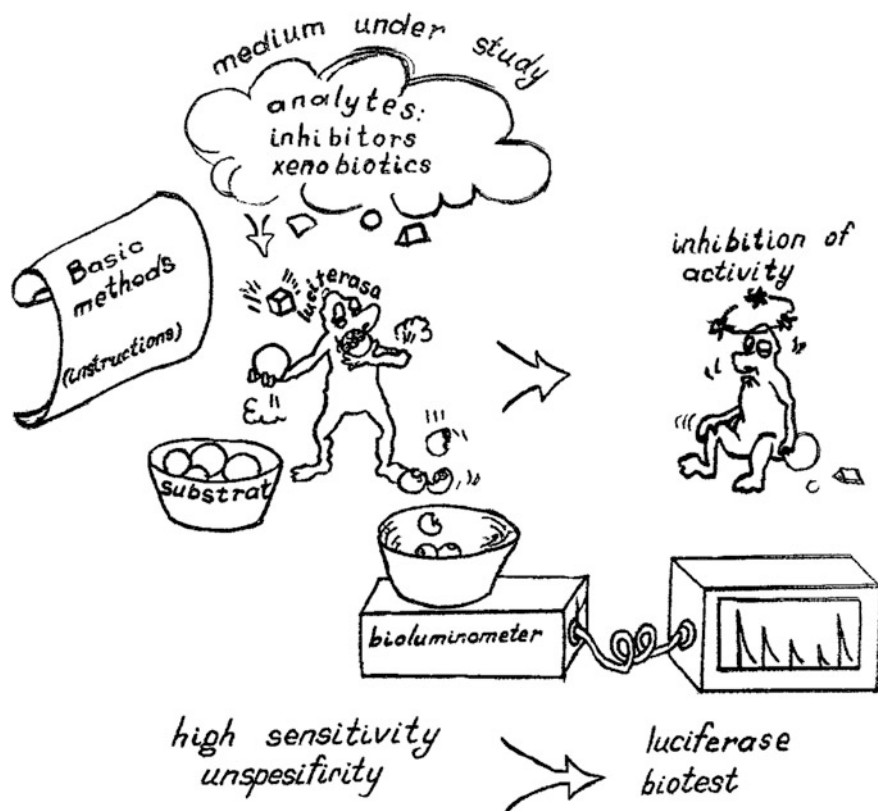 medium under study
analytes:
inhibitors
xenobiotics
Basic
methods
(instructions)
luciferasa
inhibition of
activity
substrat
bioluminometer
high sensitivity
unspesifirity
luciferase
biotest